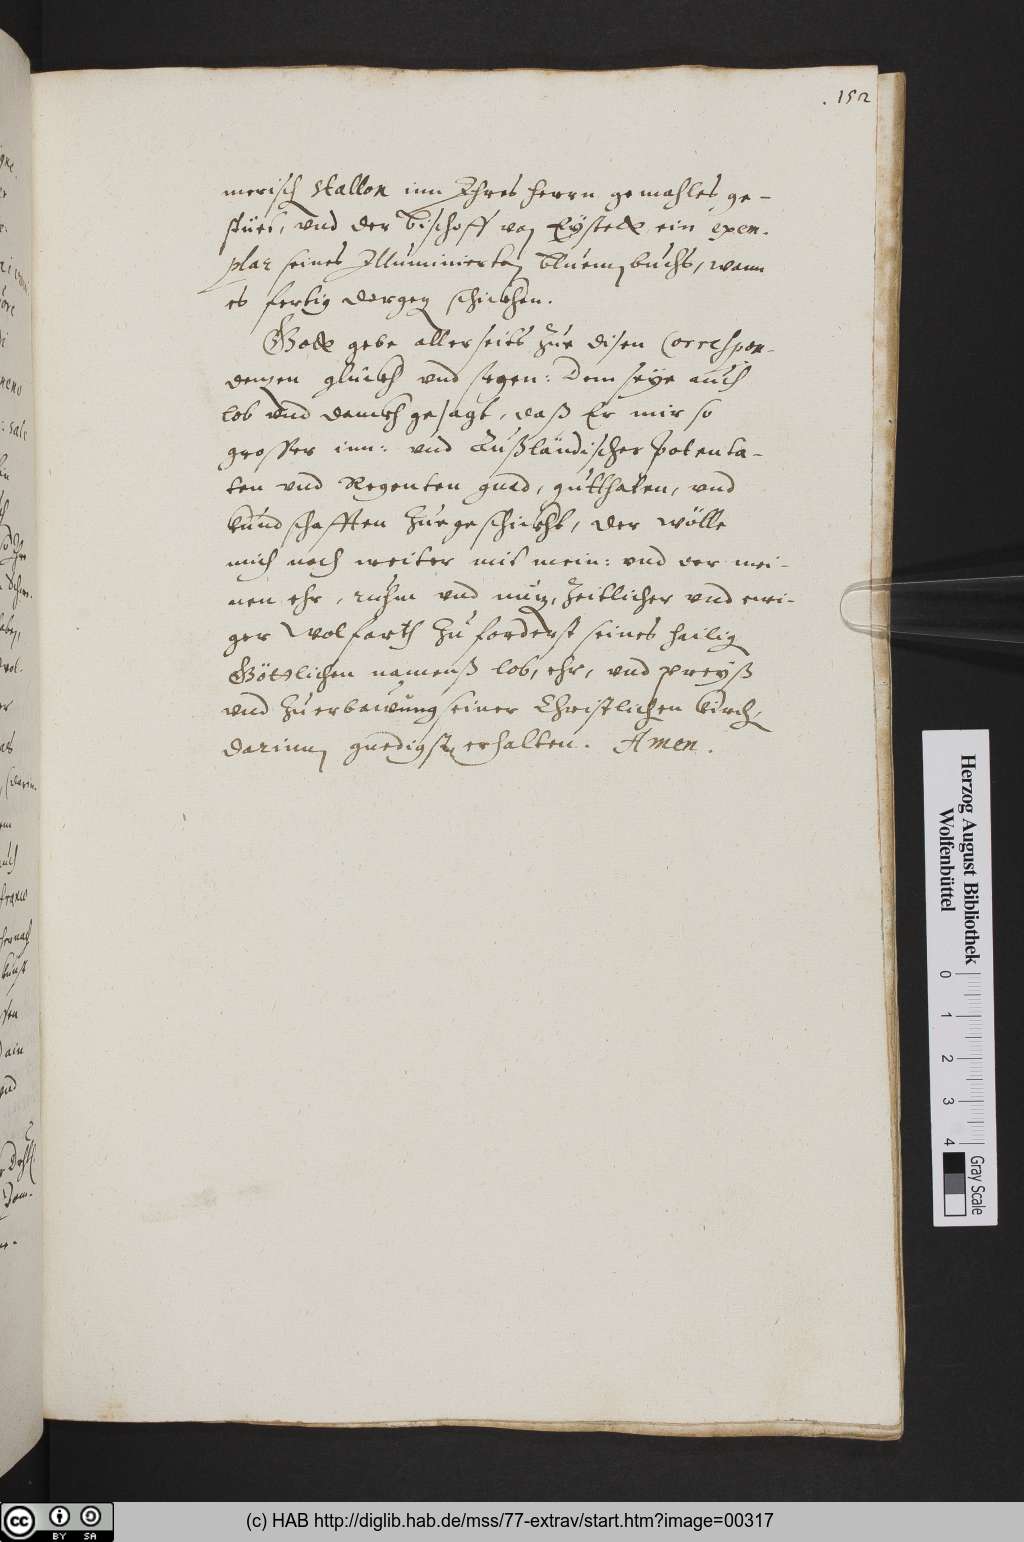 152
merisch stallon inn Ihres herrn gemahles ge-
stüet, vnd der Bischoff von Eystett ein exem-
plar seines Illuminierten Bluemenbuchs, wann
es fertig dergen schickhen.
Gott gebe allerseits zue disen Correspon-
denzen glückh vnd segen: Dem seye auch
lob vnd danckh gesagt, daß Er mir so
grosser inn: vnd Außländischer Potenta-
ten vnd Regenten gnad, gutthaten, vnd
kundschafften zuegeschickht, der wölle
mich noch weiter mit mein: vnd der mei-
nen ehr, ruhm vnd nuz, zeitlicher vnd ewi-
ger Wolfarth zu forderst seines heilig
Göttlichen namenß lob, ehr, vnd preyß
vnd zu erbawung seiner Christlichen kirch,
darinn gnedigst erhalten. Amen.
Herzog August Bibliothek
Wolfenbüttel
0 1 2 3 4
Gray Scale
cc BY SA
(c) HAB http://diglib.hab.de/mss/77-extrav/start.htm?image=00317